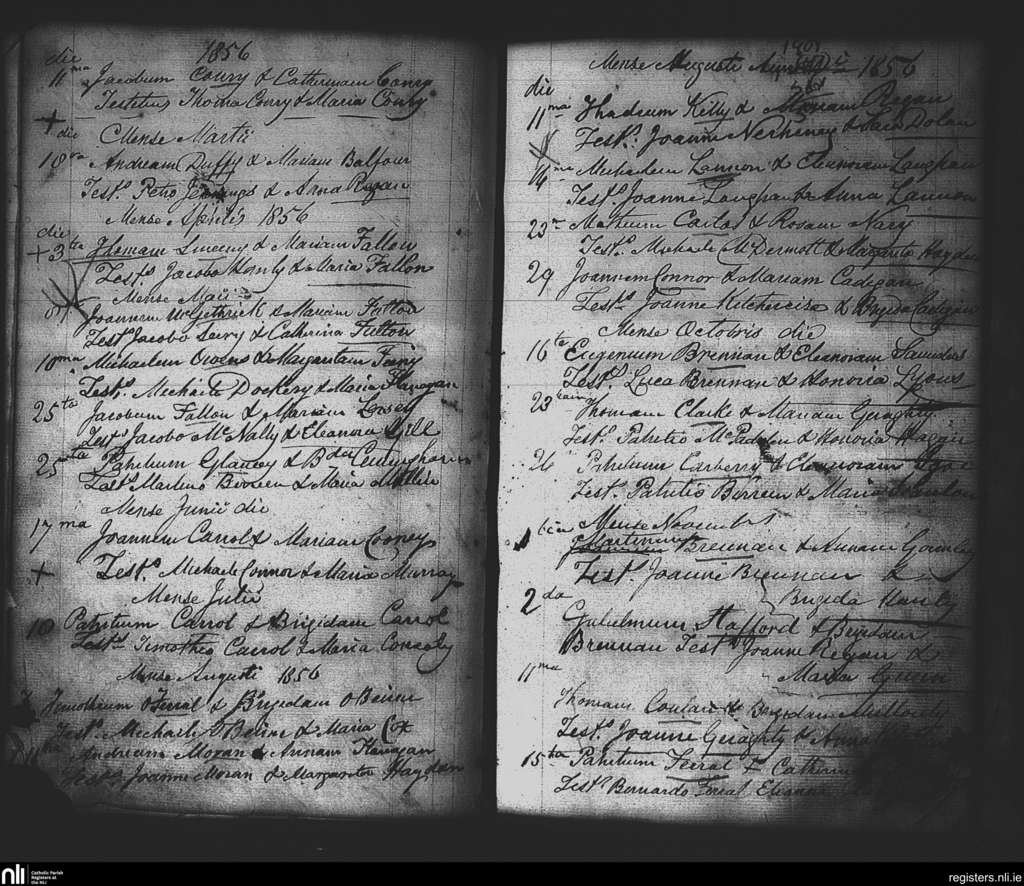 1856
die
11ma Jacobum Conry & Catherinam Conry
Testibus Thoma Conry & Maria Conry
+ die
Mense Martii
18va Andream Duffy & Mariam Balfour
Tests. Petro Jennings & Anna Regan
Mense Aprilis 1856
die
+ 3tia Thomam Sweeny & Mariam Fallon
Tests. Jacobo Hanly & Maria Fallon
Mense Maii
8 Joannem McGettrick & Mariam Fulton
Test Jacobo & Catherina Fulton
10ma Michaelem Owens & Margaritam
Tests. Michaele Dockery & Maria Flanagan
25ta Jacobum Fallon & Mariam
Tests Jacobo McNally & Eleanora Gill
25ta Patritium Glancy & Bdam Cunningham
Tests Martino & Maria
Mense Junii die
17ma Joannem Carrol & Mariam Cooney
+ Tests. Michaele Connor & Maria Murray
Mense Julii
10 Patritium Carrol & Brigidam Carrol
Tests. Timotheo Carrol & Maria Connoly
Mense Augusti 1856
Timotheum & Brigidam O'Beirne
Tests. Michaele O'Beirne & Maria Cox
Andream Moran & Annam Flanagan
Tests. Joanne Moran & Margarita Hayden
Mense Augusti 1856
die
11ma Thadeum Kelly & Mariam Regan
Tests. Joanne & Dolan
14ma Michaelem Lannon & Eleanoram Langhan
Tests. Joanne Langhan & Anna Lannon
23a Matheum Carlos & Rosam Nary
Tests. Michaele McDermott & Margarita Hayden
29 Joannem Connor & Mariam Cadegan
Tests. Joanne & Brigida Cadegan
Mense Octobris die
16ta Eugenium Brennan & Eleanoram Saunders
Tests. Luca Brennan & Honoria Lyons
23 Thomam Clarke & Mariam Geraghty
Tests. Patritio & Honoria
26 Patritium Carberry & Eleanoram
Tests. Patritio & Maria
Mense Novembris
1 Martinum Brennan & Annam Gormley
Tests. Joanne Brennan &
Brigida Hanly
2da
Gulielmum Stafford & Brigidam
Brennan Tests Joanne Regan &
Maria
11ma
Thomam & Brigidam
Tests. Joanne Geraghty & Anna
15ta Patritium Feral & Catherinam
Tests. Bernardo Feral Eleanora
nli Catholic Parish
Registers at
the NLI
registers.nli.ie